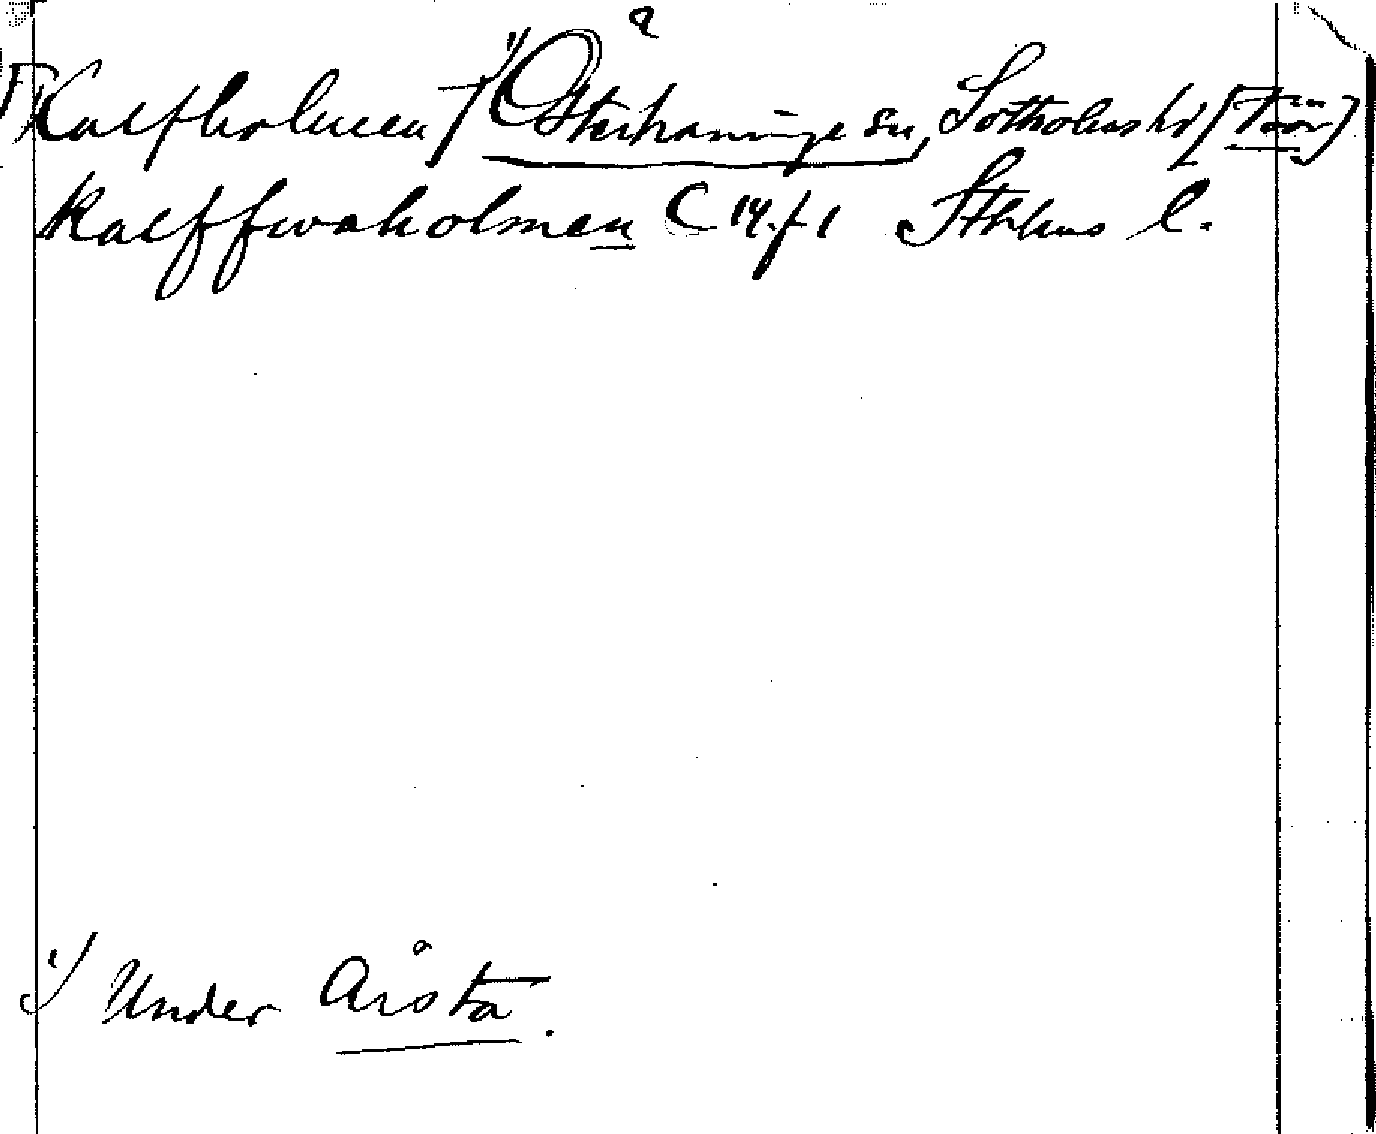 Kalfholmen † 1) Österhaninge sn, Sotholms hd [Torn]
Kalffwaholmen C 14. f 1 Sthlms l.
1) Under Årsta.